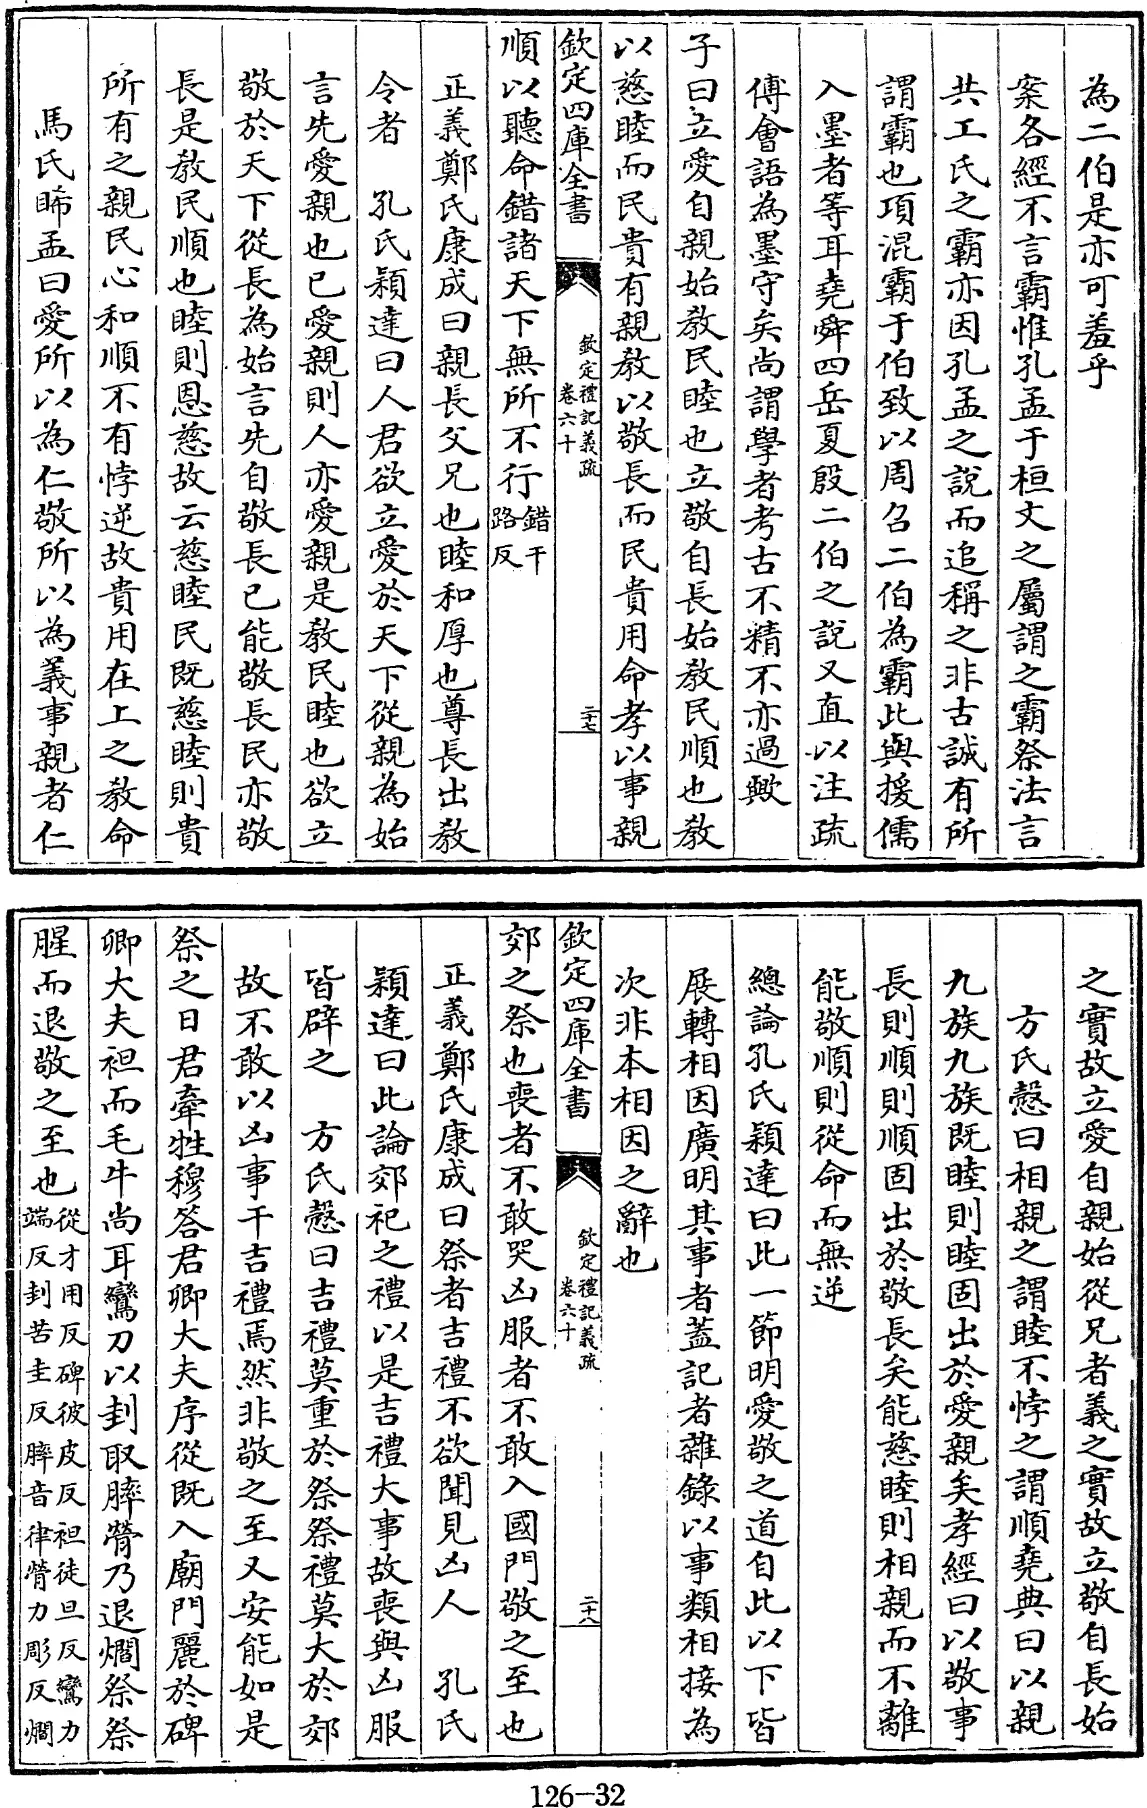 為二伯是亦可羞乎
案各經不言霸惟孔孟于桓文之屬謂之霸祭法言
共工氏之霸亦因孔孟之說而追稱之非古誠有所
謂霸也項混霸于伯致以周召二伯為霸此與援儒
入墨者等耳堯舜四岳夏殷二伯之說又直以注疏
傅會語為墨守矣尚謂學者考古不精不亦過歟
子曰立愛自親始教民睦也立敬自長始教民順也教
以慈睦而民貴有親教以敬長而民貴用命孝以事親
欽定四庫全書
欽定禮記義疏
卷六十
二十七
順以聽命錯諸天下無所不行錯干
路反
正義鄭氏康成曰親長父兄也睦和厚也尊長出教
令者 孔氏穎達曰人君欲立愛於天下從親為始
言先愛親也已愛親則人亦愛親是教民睦也欲立
敬於天下從長為始言先自敬長已能敬長民亦敬
長是教民順也睦則恩慈故云慈睦民既慈睦則貴
所有之親民心和順不有悖逆故貴用在上之教命
馬氏晞孟曰愛所以為仁敬所以為義事親者仁
之實故立愛自親始從兄者義之實故立敬自長始
方氏慤曰相親之謂睦不悖之謂順堯典曰以親
九族九族既睦則睦固出於愛親矣孝經曰以敬事
長則順則順固出於敬長矣能慈睦則相親而不離
能敬順則從命而無逆
總論孔氏穎達曰此一節明愛敬之道自此以下皆
展轉相因廣明其事者蓋記者雜錄以事類相接為
次非本相因之辭也
欽定四庫全書
欽定禮記義疏
卷六十
二十八
郊之祭也喪者不敢哭凶服者不敢入國門敬之至也
正義鄭氏康成曰祭者吉禮不欲聞見凶人 孔氏
穎達曰此論郊祀之禮以是吉禮大事故喪與凶服
皆辟之 方氏慤曰吉禮莫重於祭祭禮莫大於郊
故不敢以凶事干吉禮焉然非敬之至又安能如是
祭之日君牽牲穆答君卿大夫序從既入廟門麗於碑
卿大夫袒而毛牛尚耳鸞刀以刲取膟膋乃退爓祭祭
腥而退敬之至也從才用反碑彼皮反袒徒旦反鸞力
端反刲苦圭反膟音律膋力彫反爓
126-32